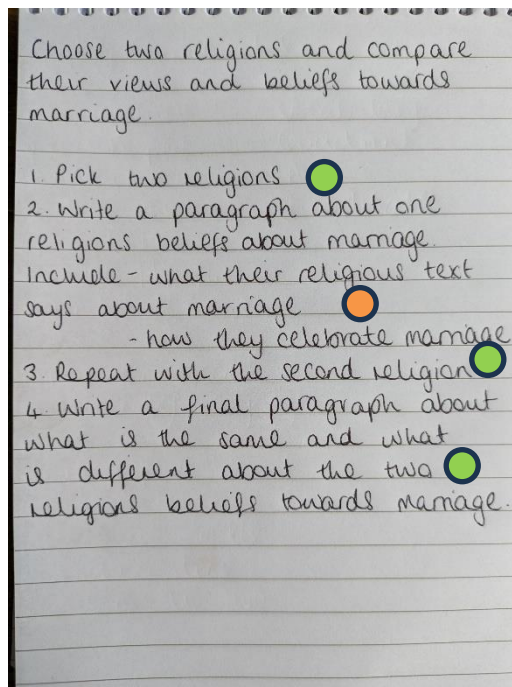 Choose two religions and compare
their views and beliefs towards
marriage.
1. Pick two religions
2. Write a paragraph about one
religions beliefs about marriage.
Include - what their religious text
says about marriage
- how they celebrate marriage
3. Repeat with the second religion
4. Write a final paragraph about
what is the same and what
is different about the two
religions beliefs towards marriage.